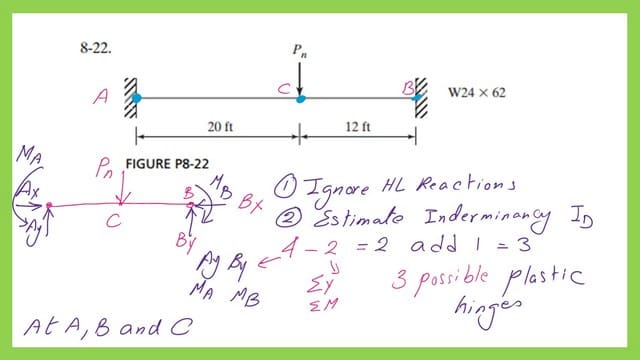 8-22.
P_n
A
C
B
W24 × 62
20 ft
12 ft
FIGURE P8-22
M_A
P_n
A_x
B
M_B
B_x
A_y
C
B_y
① Ignore HL Reactions
② Estimate Inderminancy I_D
A_y B_y ← 4 - 2 = 2 add 1 = 3
M_A M_B
ΣY
ΣM
3 possible plastic
hinges
At A, B and C